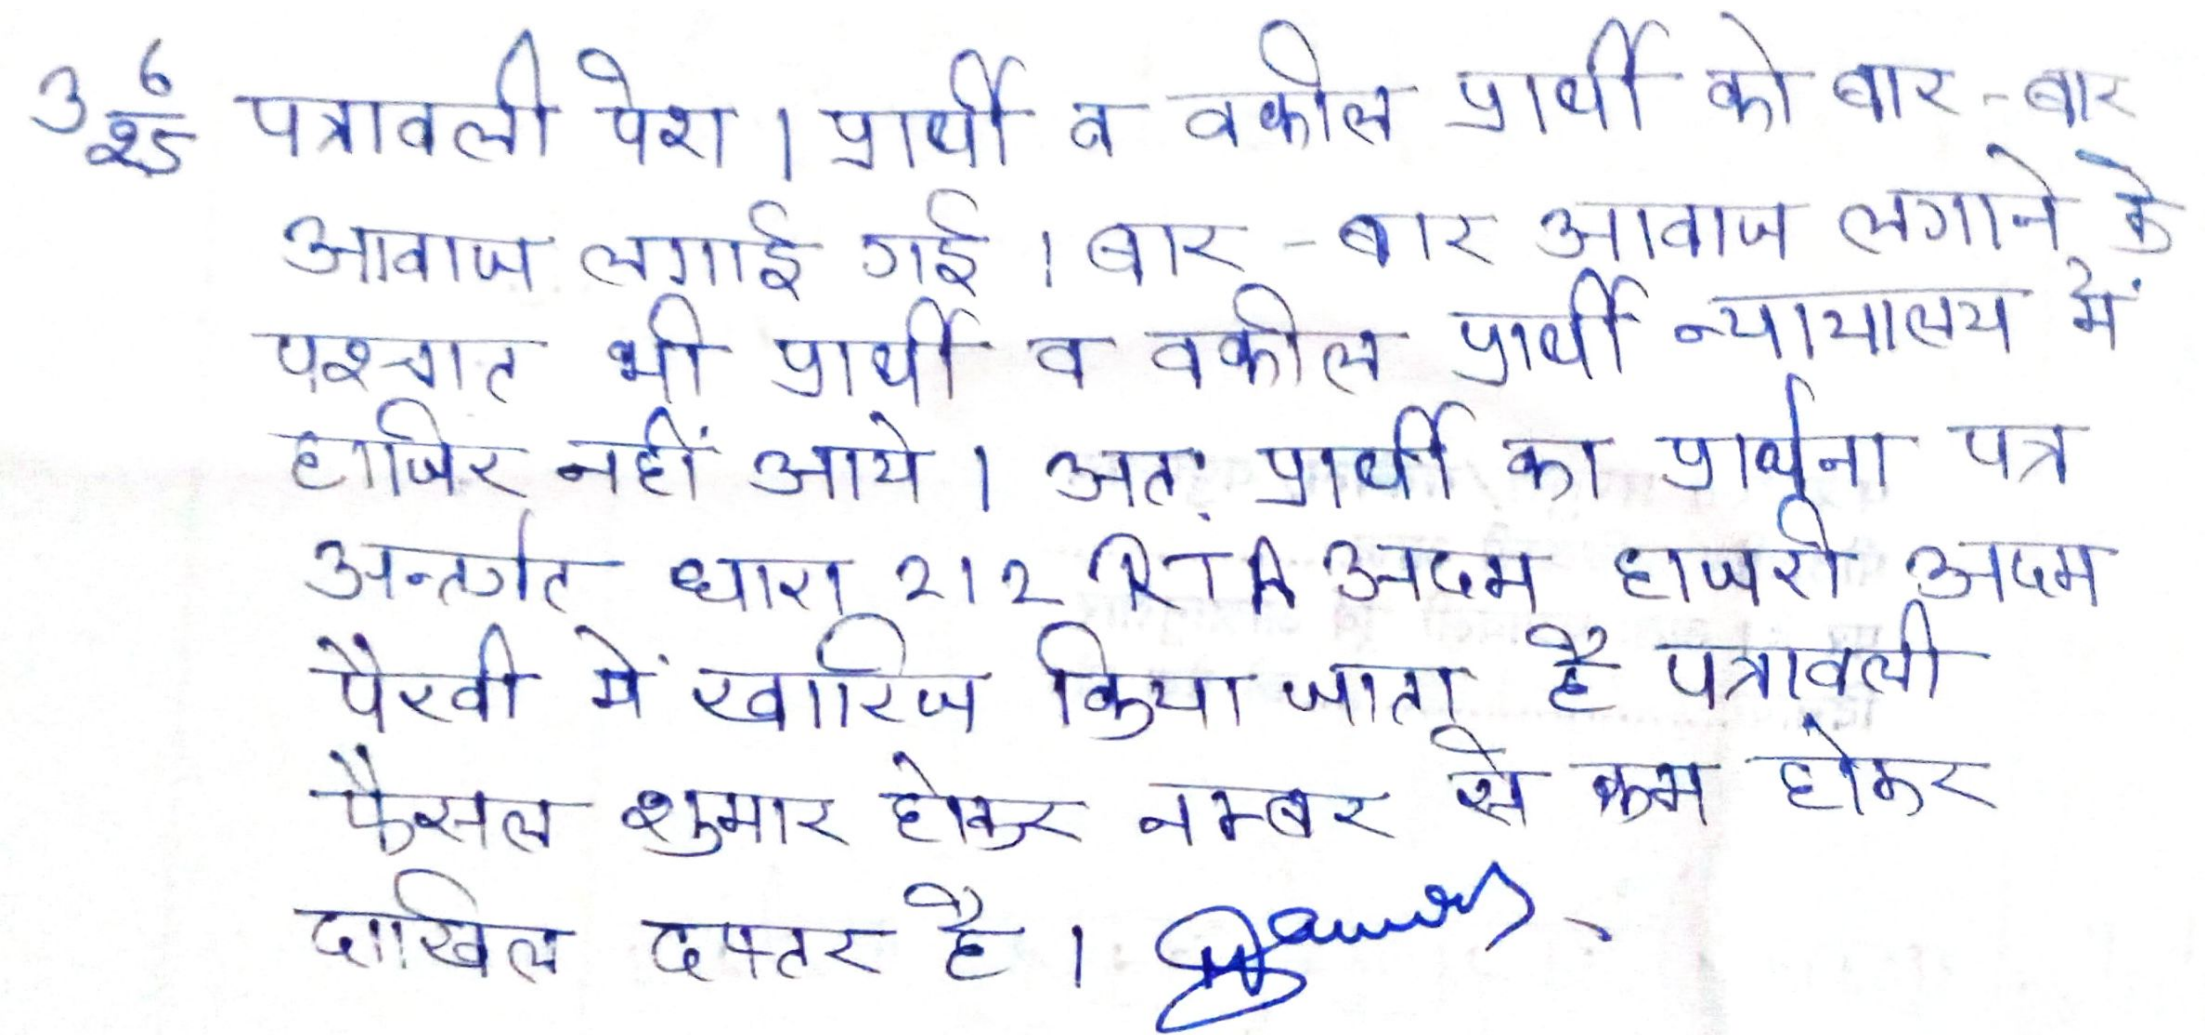 3 6/25 पत्रावली पेश । प्रार्थी व वकील प्रार्थी को बार-बार
आवाज लगाई गई । बार-बार आवाज लगाने के
पश्चात भी प्रार्थी व वकील प्रार्थी न्यायालय में
हाजिर नहीं आये । अतः प्रार्थी का प्रार्थना पत्र
अन्तर्गत धारा 212 RTA अदम हाजरी अदम
पैरवी में खारिज किया जाता है पत्रावली
फैसल शुमार होकर नम्बर से कम होकर
दाखिल दफ्तर है ।